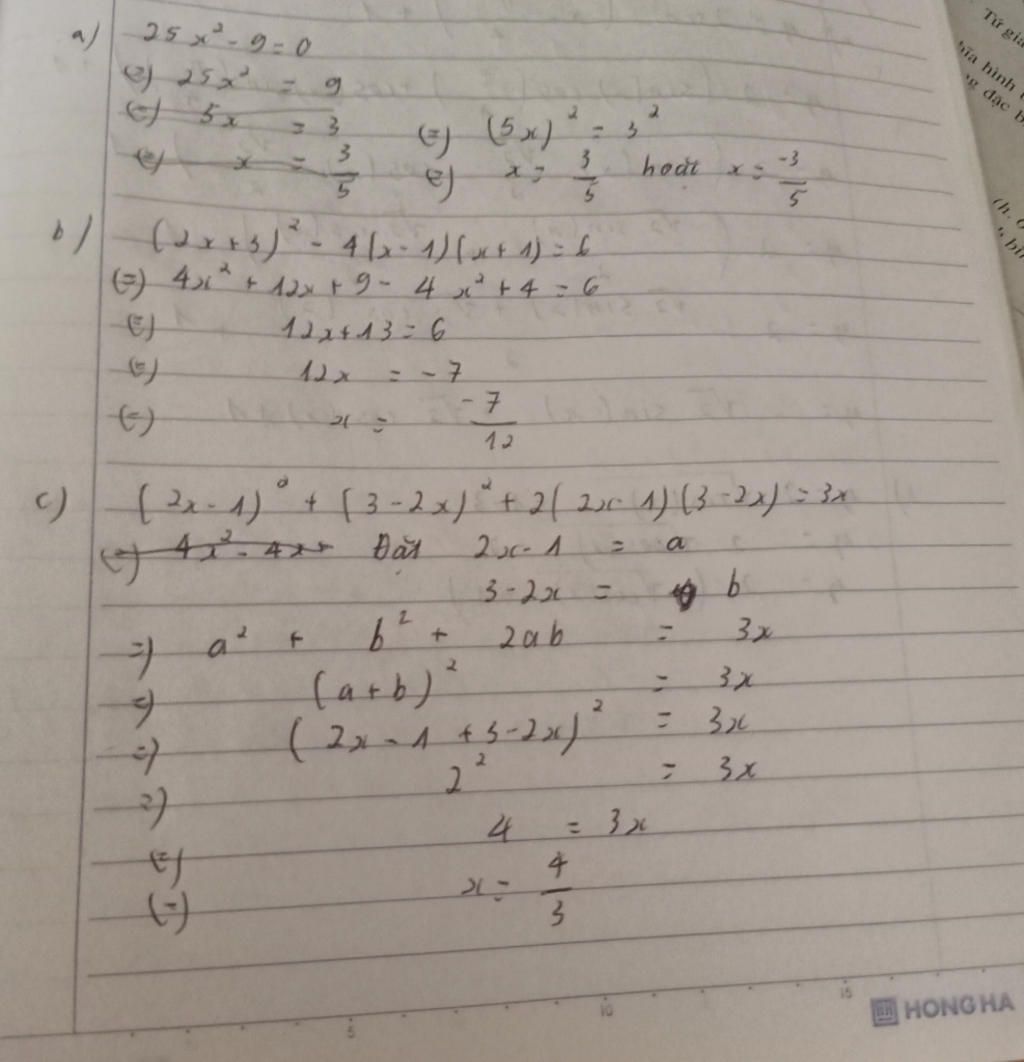 a) 25x² - 9 = 0
(=) 25x² = 9
(=) 5x = 3 (=) (5x)² = 3²
(=) x = 3/5 (=) x = 3/5 hoặc x = -3/5
b) (2x+3)² - 4(x-1)(x+1) = 6
(=) 4x² + 12x + 9 - 4x² + 4 = 6
(=) 12x + 13 = 6
(=) 12x = -7
(=) x = -7/12
c) (2x-1)² + (3-2x)² + 2(2x-1)(3-2x) = 3x
(=) 4x² - 4x + Đặt 2x-1 = a
3-2x = b
=) a² + b² + 2ab = 3x
=) (a+b)² = 3x
=) (2x-1+3-2x)² = 3x
=) 2² = 3x
(=) 4 = 3x
(=) x = 4/3
5 10 15
HONG HA
Tứ
hình
đặc